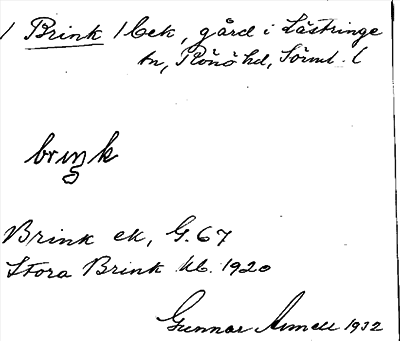 / Brink /bek, gård i Lästringe
sn, Rönö hd, Sörml. (
briŋk
Brink ek, G. 67
Stora Brink kb. 1920
Gunnar 1932